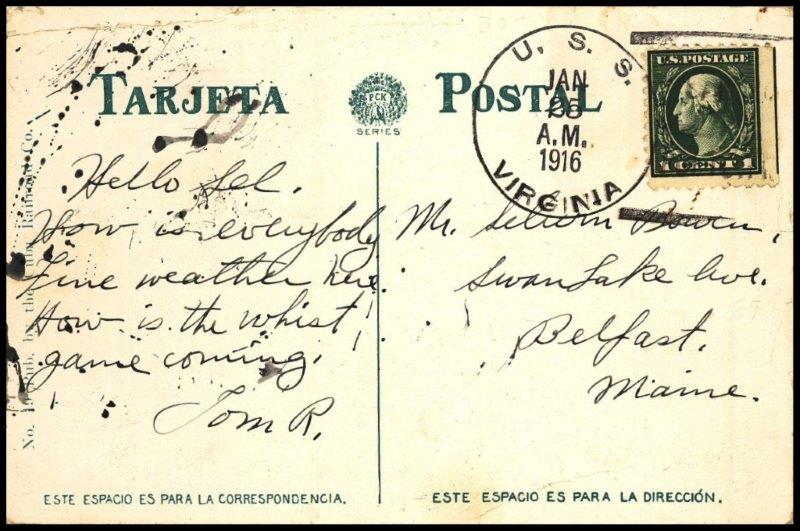 TARJETA POSTAL
PCK
SERIES
U.S.S.
JAN
26
A.M.
1916
VIRGINIA
U.S. POSTAGE
1 CENT 1
Hello Sel.
How is everybody
Fine weather here.
How is the whist
game coming.
Tom R.
Mr. Selwin Bowen,
Swan Lake Ave.
Belfast.
Maine.
No. 19 Pub. by the Cuba Railroad Co.
ESTE ESPACIO ES PARA LA CORRESPONDENCIA.
ESTE ESPACIO ES PARA LA DIRECCIÓN.